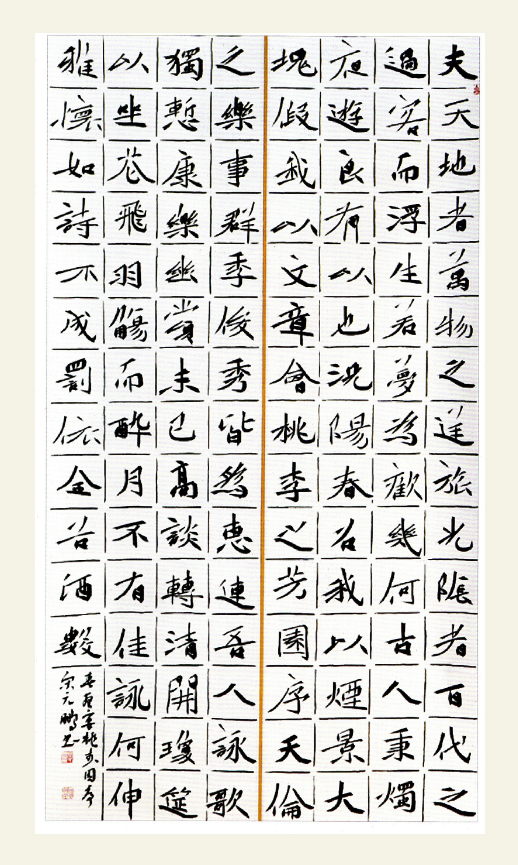 夫天地者萬物之逆旅光陰者百代之
過客而浮生若夢為歡幾何古人秉燭
夜遊良有以也況陽春召我以煙景大
塊假我以文章會桃李之芳園序天倫
之樂事群季俊秀皆為惠連吾人詠歌
獨慙康樂幽賞未已高談轉清開瓊筵
以坐花飛羽觴而醉月不有佳詠何伸
雅懷如詩不成罰依金谷酒數
春夜宴桃李园序
元鹏书